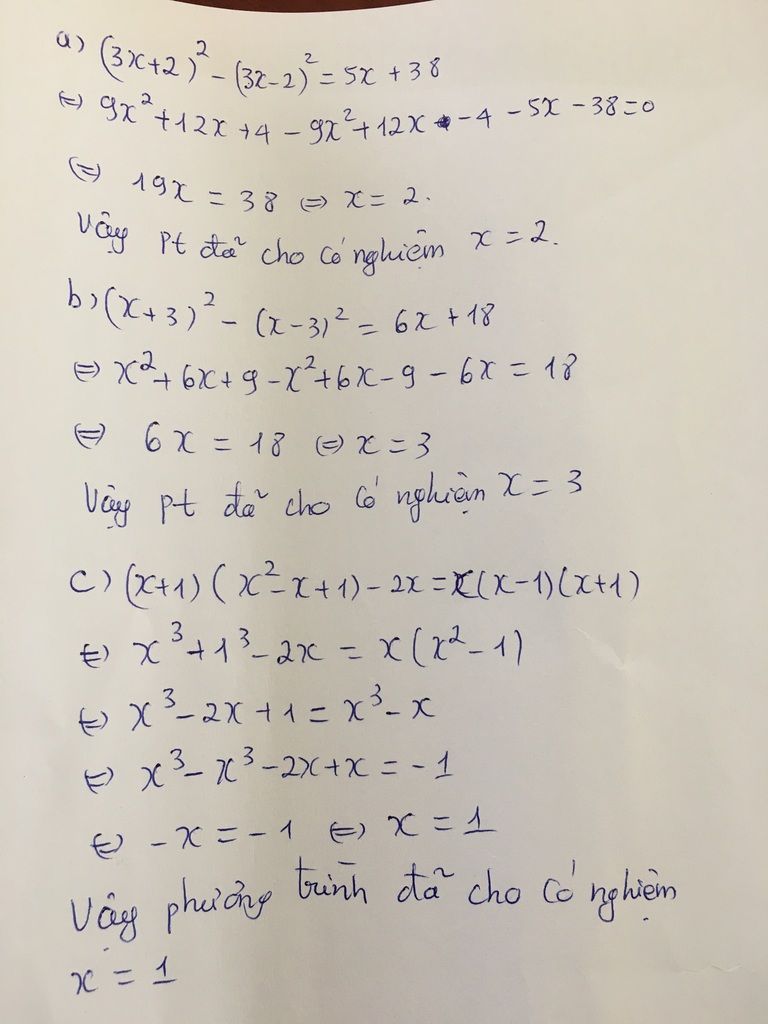 a) (3x+2)² - (3x-2)² = 5x + 38
⇔ 9x² + 12x + 4 - 9x² + 12x - 4 - 5x - 38 = 0
⇔ 19x = 38 ⇔ x = 2.
Vậy pt đã cho có nghiệm x = 2.
b) (x+3)² - (x-3)² = 6x + 18
⇔ x² + 6x + 9 - x² + 6x - 9 - 6x = 18
⇔ 6x = 18 ⇔ x = 3
Vậy pt đã cho có nghiệm x = 3
c) (x+1)(x² - x + 1) - 2x = x(x-1)(x+1)
⇔ x³ + 1³ - 2x = x(x² - 1)
⇔ x³ - 2x + 1 = x³ - x
⇔ x³ - x³ - 2x + x = -1
⇔ -x = -1 ⇔ x = 1
Vậy phương trình đã cho có nghiệm
x = 1